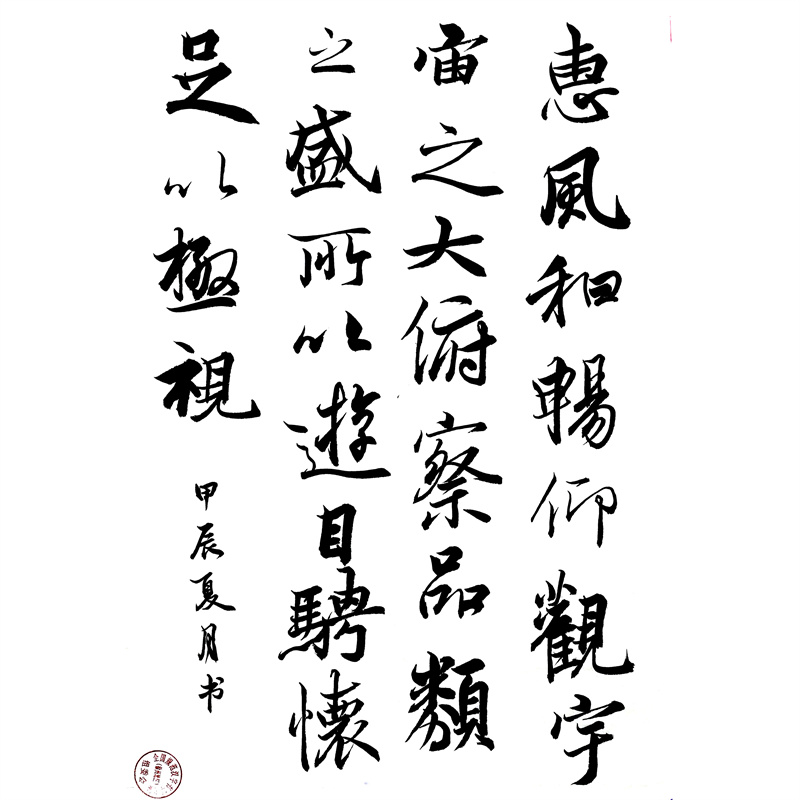 惠風和暢仰觀宇
宙之大俯察品類
之盛所以遊目騁懷
足以極視
甲辰夏月书